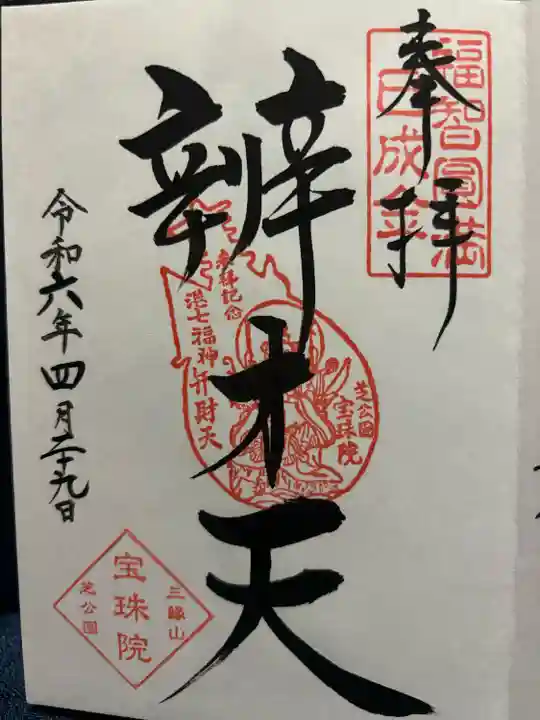 奉拝
福智圓満
巳成金
辨才天
参拝記念
港七福神弁財天
芝公園
宝珠院
令和六年四月二十九日
三縁山
宝珠院
芝公園